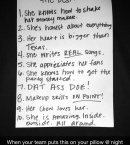 1. She knows how to shake
her money maker.
2. She's honest about everything
3. Her heart is bigger than
Texas.
4. She writes REAL songs.
5. She appreciates her fans
6. She knows how to get the
party started.
7. DAT ASS DOE!
8. Makeup skills ON POINT!
9. Her chow loves her.
10. She is Amazing. Inside.
outside. All around.
When your team puts this on your pillow @ night